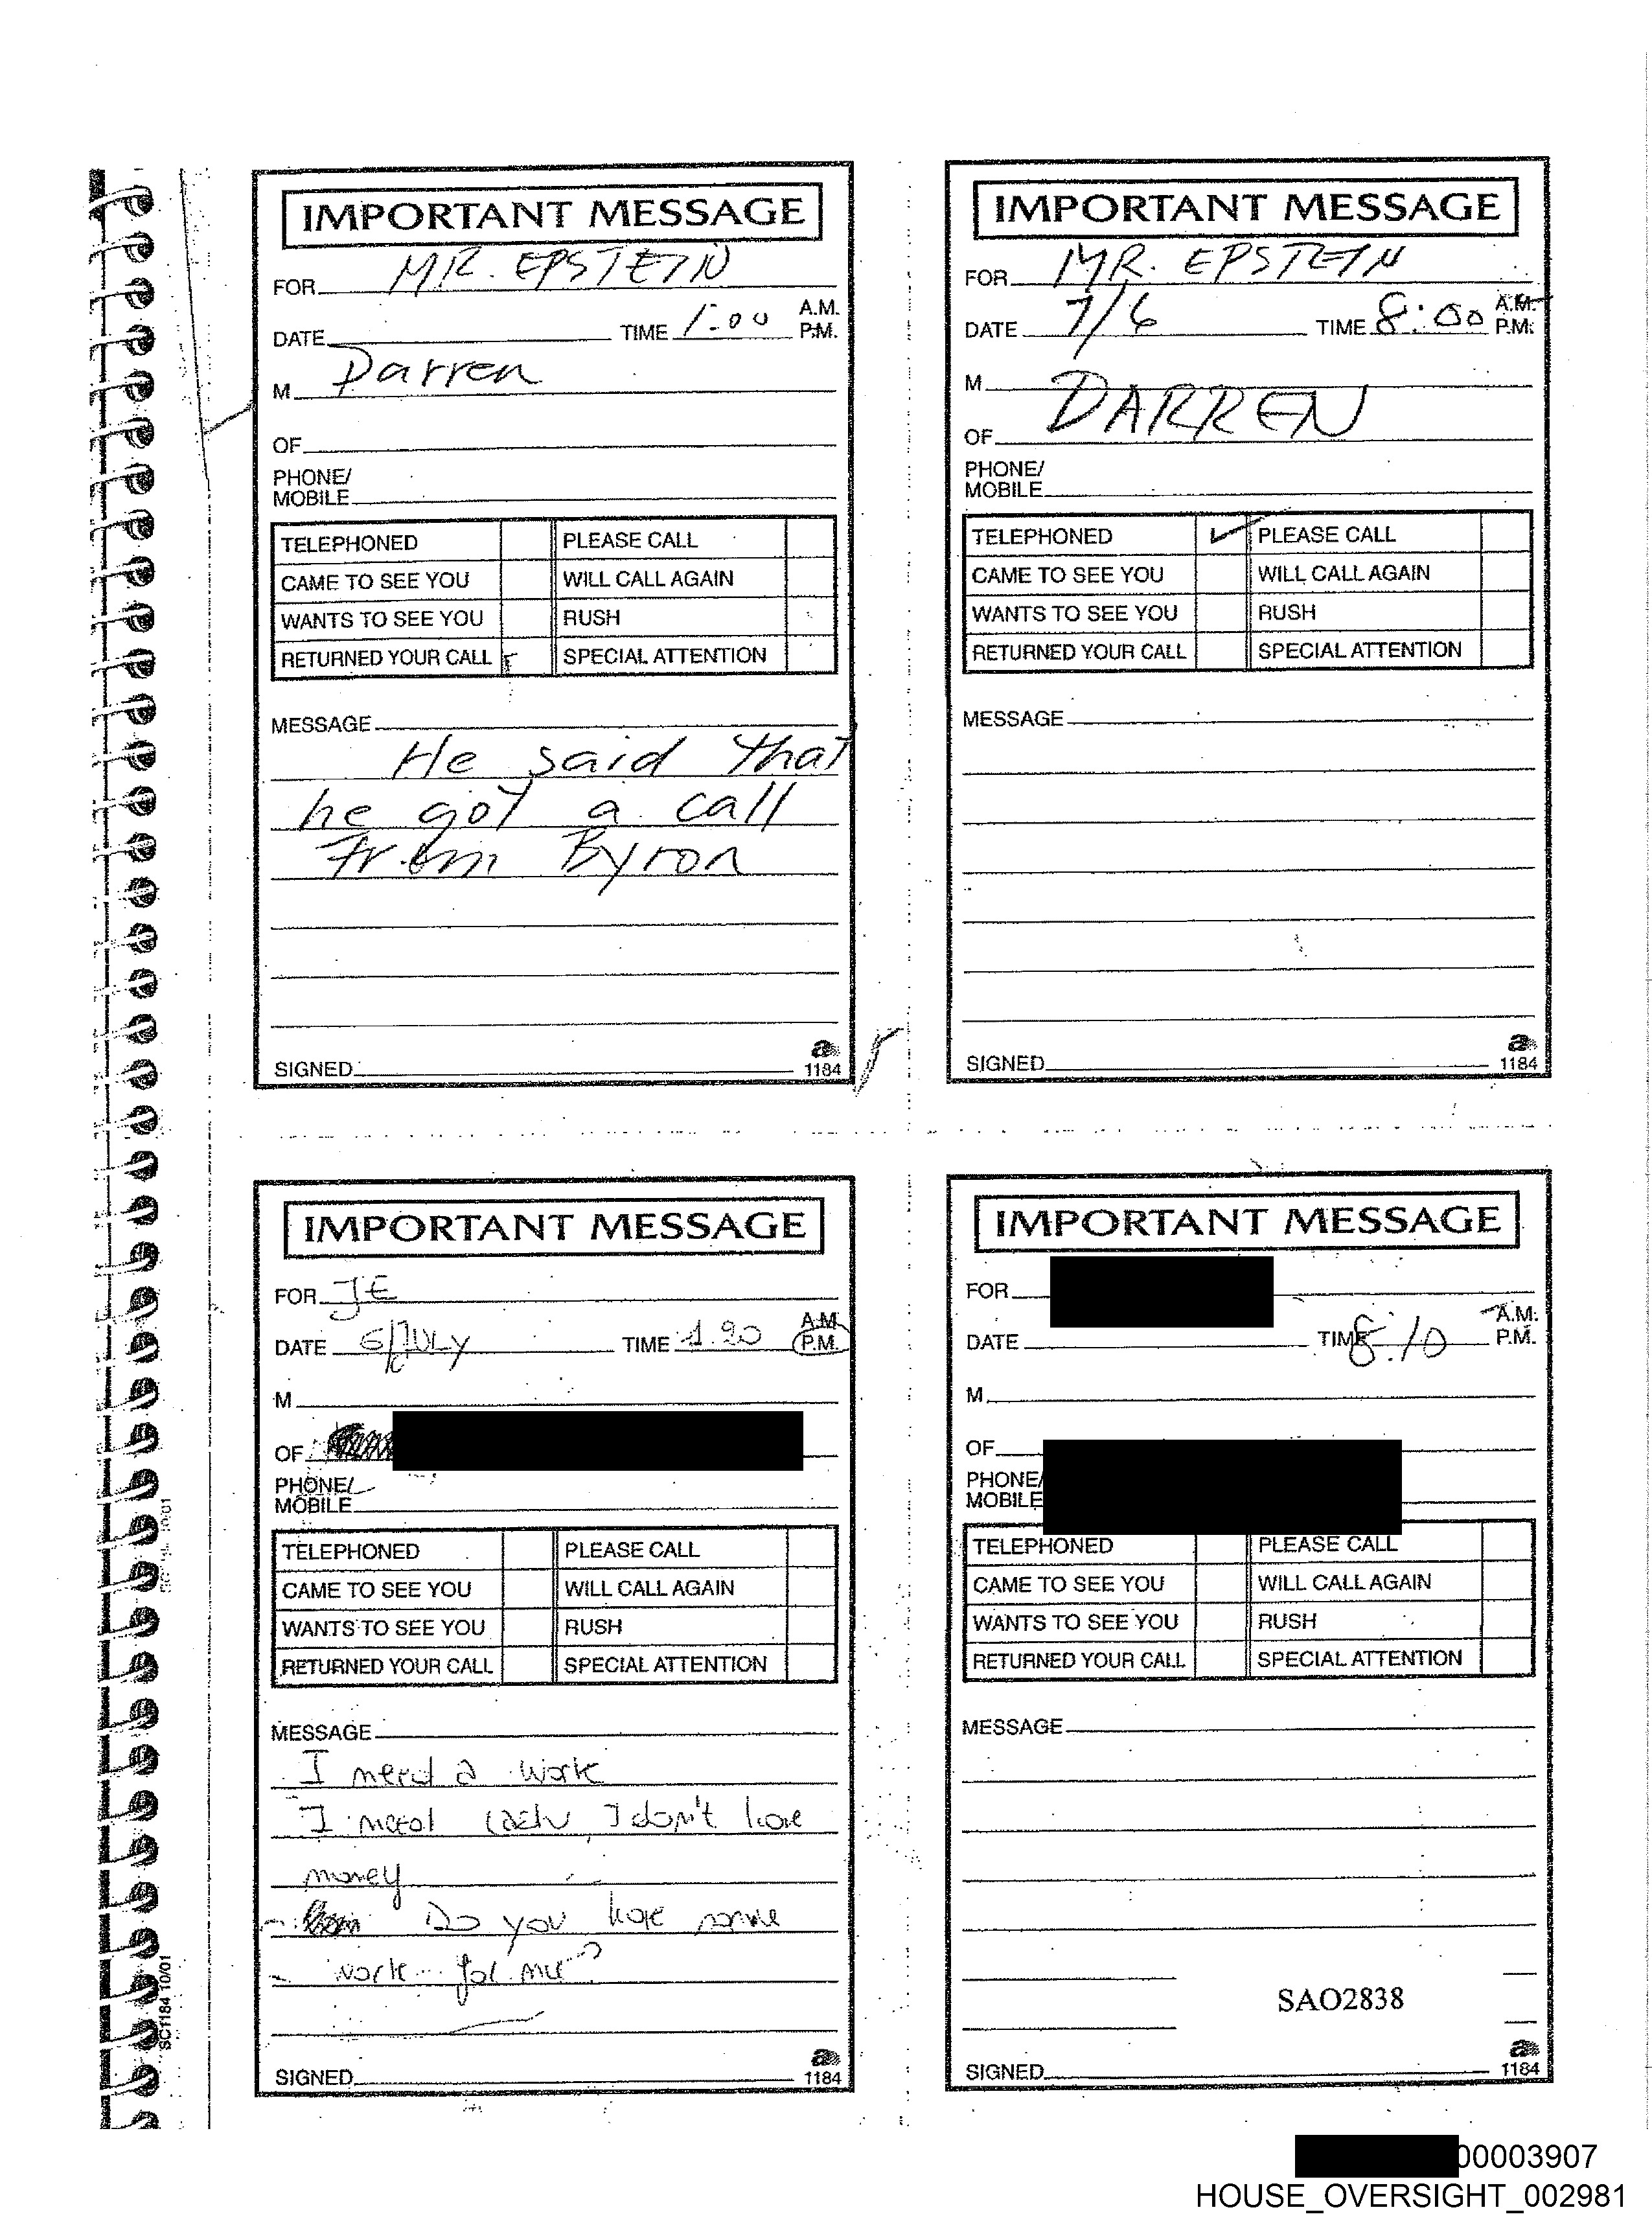 IMPORTANT MESSAGE
FOR MR. EPSTEIN
DATE TIME 1:00 A.M. P.M.
M Darren
OF
PHONE/
MOBILE
TELEPHONED PLEASE CALL
CAME TO SEE YOU WILL CALL AGAIN
WANTS TO SEE YOU RUSH
RETURNED YOUR CALL SPECIAL ATTENTION
MESSAGE
He said that
he got a call
From Byron
SIGNED
a
1184
IMPORTANT MESSAGE
FOR MR. EPSTEIN
DATE 7/6 TIME 8:00 A.M. P.M.
M
OF DARREN
PHONE/
MOBILE
TELEPHONED ✓ PLEASE CALL
CAME TO SEE YOU WILL CALL AGAIN
WANTS TO SEE YOU RUSH
RETURNED YOUR CALL SPECIAL ATTENTION
MESSAGE
SIGNED
a
1184
IMPORTANT MESSAGE
FOR JE
DATE 6/JULY TIME 1.20 A.M. P.M.
M
OF
PHONE/
MOBILE
TELEPHONED PLEASE CALL
CAME TO SEE YOU WILL CALL AGAIN
WANTS TO SEE YOU RUSH
RETURNED YOUR CALL SPECIAL ATTENTION
MESSAGE
I need a work
I need cash, I don't have
money
Do you have some
work for me?
SIGNED
a
1184
IMPORTANT MESSAGE
FOR
DATE TIME 8:10 A.M. P.M.
M
OF
PHONE/
MOBILE
TELEPHONED PLEASE CALL
CAME TO SEE YOU WILL CALL AGAIN
WANTS TO SEE YOU RUSH
RETURNED YOUR CALL SPECIAL ATTENTION
MESSAGE
SAO2838
SIGNED
a
1184
SC1184 10/01
00003907
HOUSE_OVERSIGHT_002981